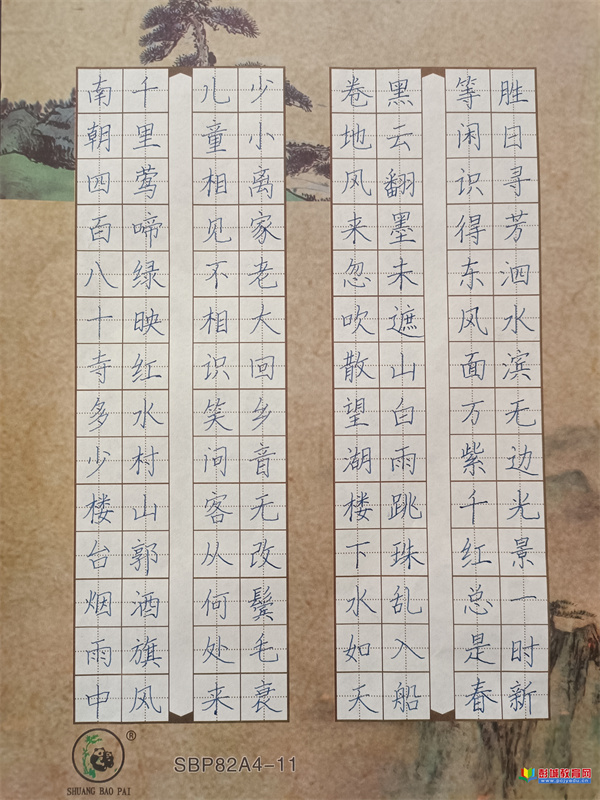 胜日寻芳泗水滨无边光景一时新
等闲识得东风面万紫千红总是春
黑云翻墨未遮山白雨跳珠乱入船
卷地风来忽吹散望湖楼下水如天
少小离家老大回乡音无改鬓毛衰
儿童相见不相识笑问客从何处来
千里莺啼绿映红水村山郭酒旗风
南朝四百八十寺多少楼台烟雨中
®
SHUANG BAO PAI
SBP82A4-11
彭城教育网